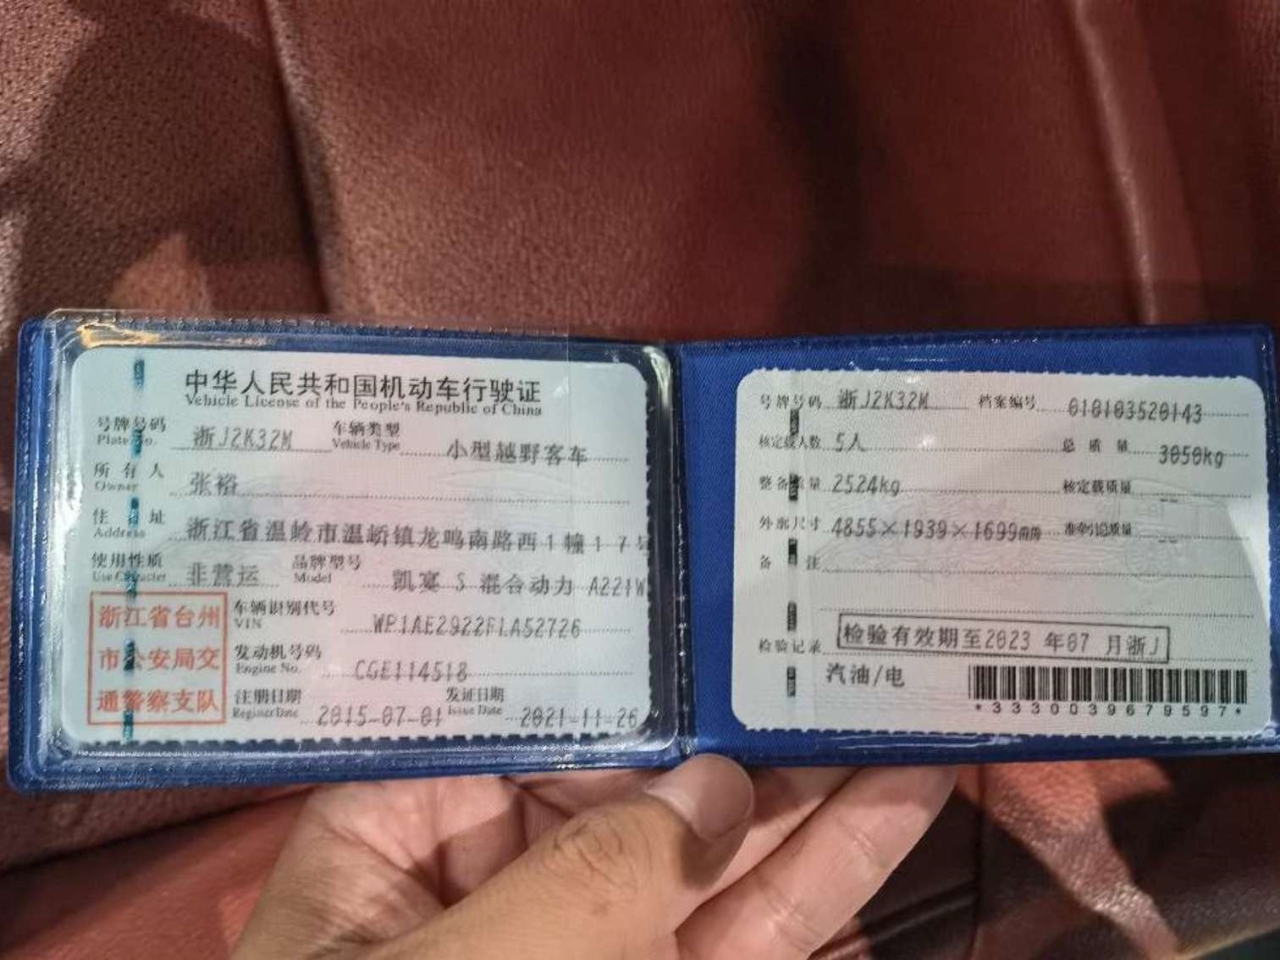 中华人民共和国机动车行驶证
Vehicle License of the People's Republic of China
号牌号码 浙J2K32M 车辆类型 小型越野客车
Plate No. Vehicle Type
所有人 张裕
Owner
住址 浙江省温岭市温峤镇龙鸣南路西1幢17号
Address
使用性质 非营运 品牌型号 凯宴 S 混合动力 A221W
Use Character Model
浙江省台州
市公安局交
通警察支队
车辆识别代号 WP1AE2922FLA52726
VIN
发动机号码 CGE114518
Engine No.
注册日期 2015-07-01 发证日期 2021-11-26
Register Date Issue Date
号牌号码 浙J2K32M 档案编号 010103520143
核定载人数 5人 总质量 3050kg
整备质量 2524kg 核定载质量 --
外廓尺寸 4855×1939×1699mm 准牵引总质量 --
备注
检验记录 检验有效期至2023 年07 月浙J
汽油/电
*3330039679597*